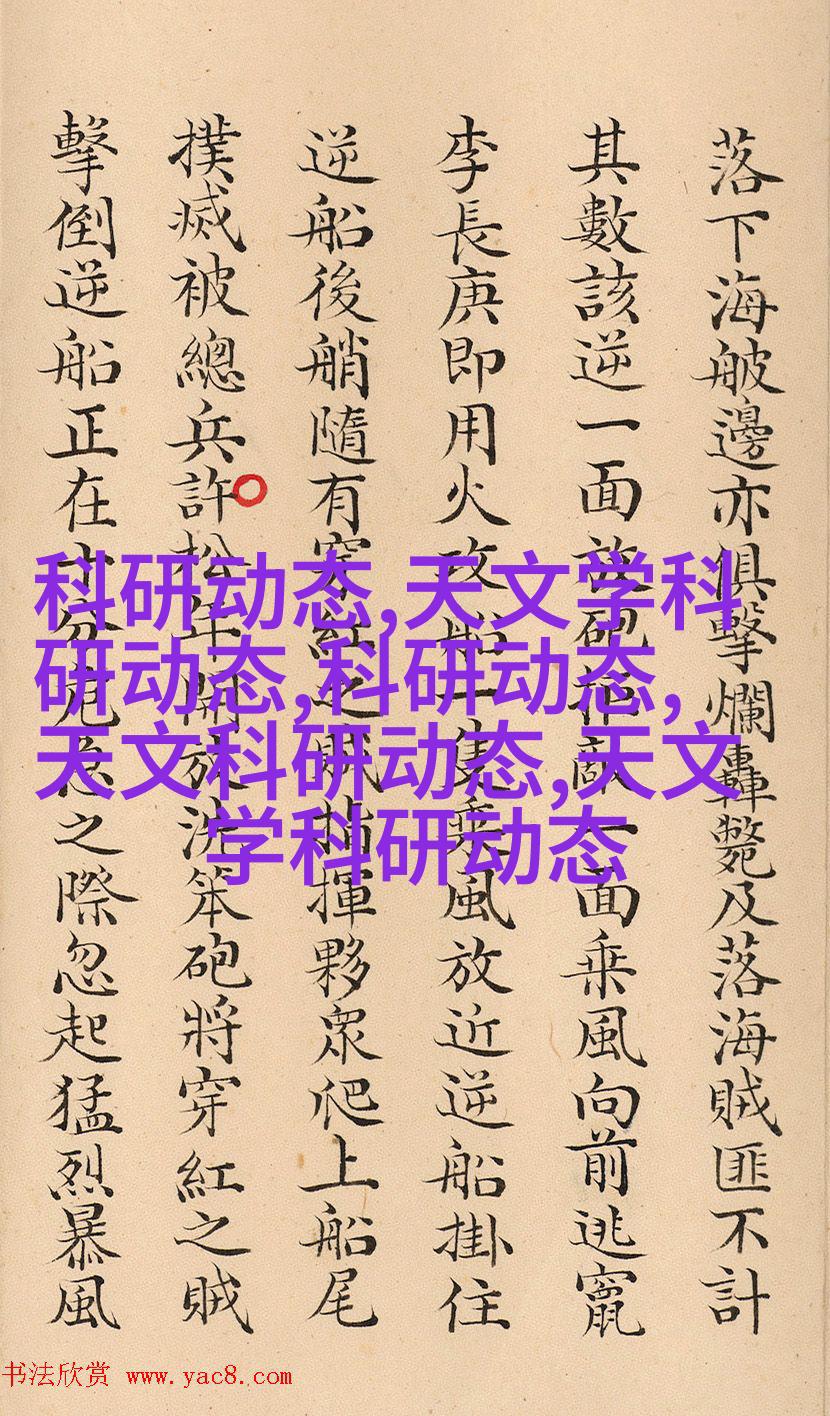 落下海邊亦俱擊爛轟斃及落海賊匪不計
其數該逆一面放砲拒敵一面乗風向前逃竄
李長庚即用火攻船一隻乗風放近逆船掛住
逆船後艄隨有穿紅之賊指揮夥眾爬上船尾
撲滅被總兵許松年開放洗笨砲將穿紅之賊
擊倒逆船正在十分危急之際忽起猛烈暴風
科研动态,天文学科
研动态,科研动态,
天文科研动态,天文
学科研动态
书法欣赏 www.yac8.com